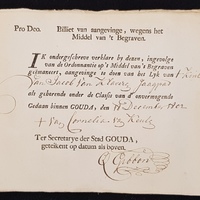 Pro Deo. Billiet van aangevinge, wegens het
Middel van 't Begraven.
IK ondergeschreve verklare by dezen, ingevolge
van de Ordonnantie op 't Middel van 't Begraven
geëmaneert, aangevinge te doen van het Lyk van 't Kint
van Jacob van
als gehoorende onder de Classis van d'onvermogende
Gedaan binnen GOUDA, den December 1802
Cornelis
Ter Secretarye der Stad GOUDA,
geteikent op datum als boven.